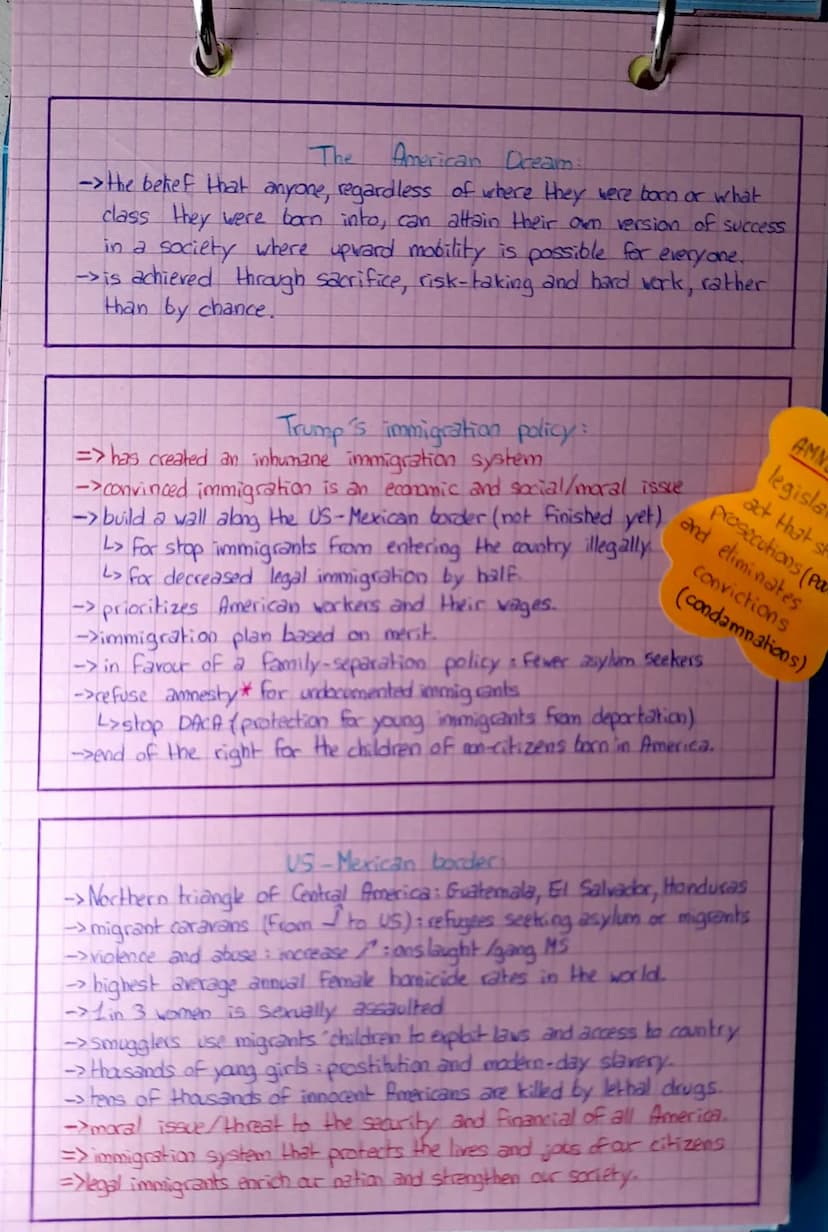 The American Dream:
->the belief that anyone, regardless of where they were born or what
class they were born into, can attain their own version of success
in a society where upward mobility is possible for everyone.
->is achieved through sacrifice, risk-taking and hard work, rather
than by chance.
Trump's immigration policy:
=>has created an inhumane immigration system
->convinced immigration is an economic and social/moral issue
->build a wall along the US-Mexican border (not finished yet)
↳ for stop immigrants from entering the country illegally
↳ for decreased legal immigration by half.
-> prioritizes American workers and their wages.
->immigration plan based on merit.
-> in favour of a family-separation policy: fewer asylum seekers
->refuse amnesty* for undocumented immigrants
↳stop DACA (protection for young immigrants from deportation)
->end of the right for the children of non-citizens born in America.
AMN
legisla
act that s
prosecutions (Pou
and eliminates
convictions
(condamnations)
US-Mexican border:
->Northern triangle of Central America: Guatemala, El Salvador, Honduras
->migrant caravans (from ↑ to US): refugees seeking asylum or migrants
->violence and abuse: increase ↗: onslaught/gang MS
-> highest average annual female homicide rates in the world.
->1 in 3 women is sexually assaulted
->smugglers use migrants' children to exploit laws and access to country
->thousands of yang girls: prostitution and modern-day slavery.
->tens of thousands of innocent Americans are killed by lethal drugs.
->moral issue/threat to the security and financial of all America.
=>immigration system that protects the lives and jobs of our citizens
=>legal immigrants enrich our nation and strengthen our society.